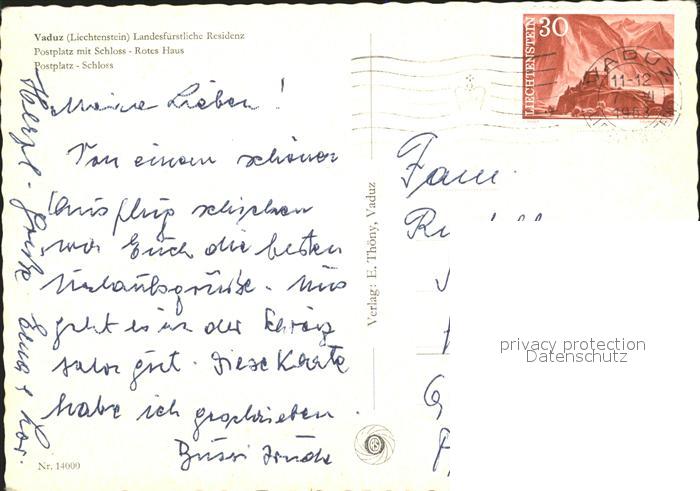 Vaduz (Liechtenstein) Landesfürstliche Residenz
Postplatz mit Schloss - Rotes Haus
Postplatz - Schloss
Meine Lieben!
Von einem schönen
Ausflug schicken
wir Euch die besten
Urlaubsgrüße. Uns
geht es in der Schweiz
sehr gut. Diese Karte
habe ich geschrieben.
Bussi Trude
Herzl. Grüße
Nr. 14000
Verlag: E. Thöny, Vaduz
LIECHTENSTEIN 30
VADUZ
11-12
Fam.
privacy protection
Datenschutz